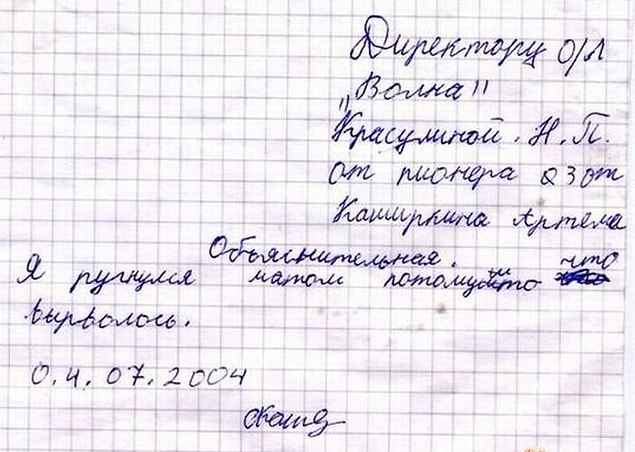 Директору О/Л
"Волна"
Красулиной. Н. П.
от пионера 23 от
Каширкина Артема
Объяснительная.
Я ругнулся матом потомушто что
вырволось.
04.07.2004